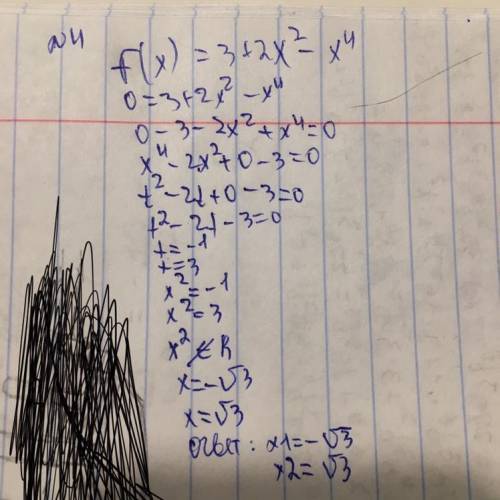 №4
f(x) = 3+2x² - x⁴
0 = 3+2x² - x⁴
0 - 3 - 2x² + x⁴ = 0
x⁴ - 2x² + 0 - 3 = 0
t² - 2t + 0 - 3 = 0
t² - 2t - 3 = 0
t = -1
t = 3
x² = -1
x² = 3
x² ∉ R
x = -√3
x = √3
Ответ: x1 = -√3
x2 = √3